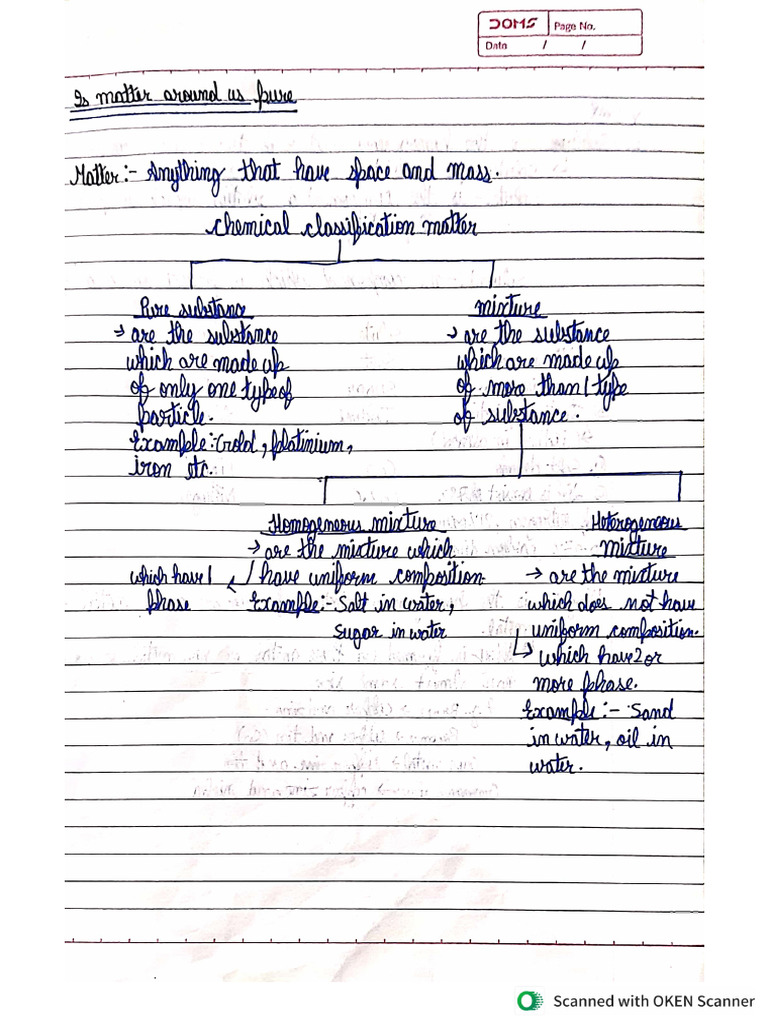 DOMS Page No.
Date / /
Is matter around us pure
Matter:- Anything that have space and mass.
chemical classification matter
Pure substance
→ are the substance
which are made up
of only one type of
particle.
Example:- Gold, platinium,
iron etc.
mixture
→ are the substance
which are made up
of more than 1 type
of substance.
Homogeneous mixture
→ are the mixture which
have uniform composition
which have 1
phase
Example:- Salt in water,
sugar in water
Heterogeneous
mixture
→ are the mixture
which does not have
uniform composition.
↳ which have 2 or
more phase.
Example:- Sand
in water, oil in
water.
Scanned with OKEN Scanner